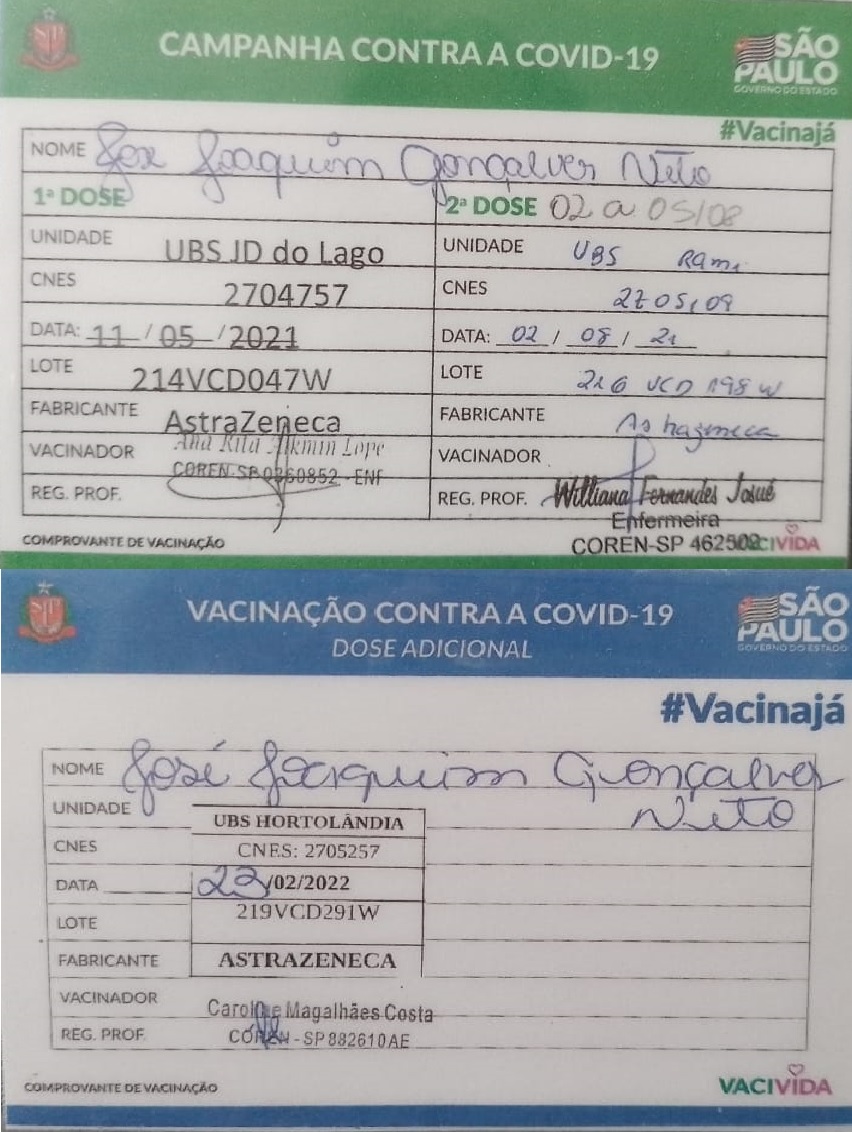 CAMPANHA CONTRA A COVID-19
SÃO PAULO
GOVERNO DO ESTADO
#Vacinajá
NOME José Joaquim Gonçalves Neto
1ª DOSE
UNIDADE UBS JD do Lago
CNES 2704757
DATA: 11/05/2021
LOTE 214VCD047W
FABRICANTE AstraZeneca
VACINADOR Ana Rita Alkmin Lope
REG. PROF. COREN-SP 0360852 - ENF
2ª DOSE 02 a 05/08
UNIDADE UBS Rami
CNES 2705109
DATA: 02/08/21
LOTE 216 VCD 198 W
FABRICANTE Astrazeneca
VACINADOR
REG. PROF. Williana Fernandes Josué
Enfermeira
COREN-SP 462502
COMPROVANTE DE VACINAÇÃO
VACIVIDA
VACINAÇÃO CONTRA A COVID-19
DOSE ADICIONAL
SÃO PAULO
GOVERNO DO ESTADO
#Vacinajá
NOME José Joaquim Gonçalves
Neto
UNIDADE UBS HORTOLÂNDIA
CNES CNES: 2705257
DATA 23/02/2022
LOTE 219VCD291W
FABRICANTE ASTRAZENECA
VACINADOR Caroline Magalhães Costa
REG. PROF. COREN-SP 882610AE
COMPROVANTE DE VACINAÇÃO
VACIVIDA